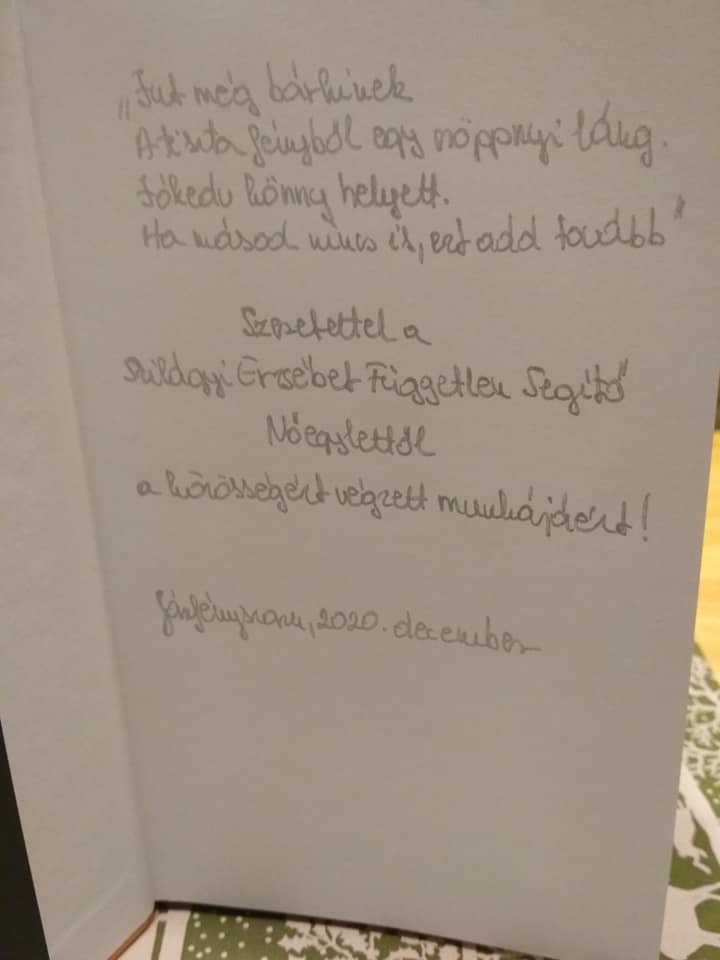 „Jut még bárkinek
A tiszta fényből egy nöppnyi láng.
Jókedv könny helyett.
Ha másod nincs is, ezt add tovább"
Szeretettel a
Szilágyi Erzsébet Független Segítő
Nőegylettől
a közösségért végzett munkájáért!
2020. december